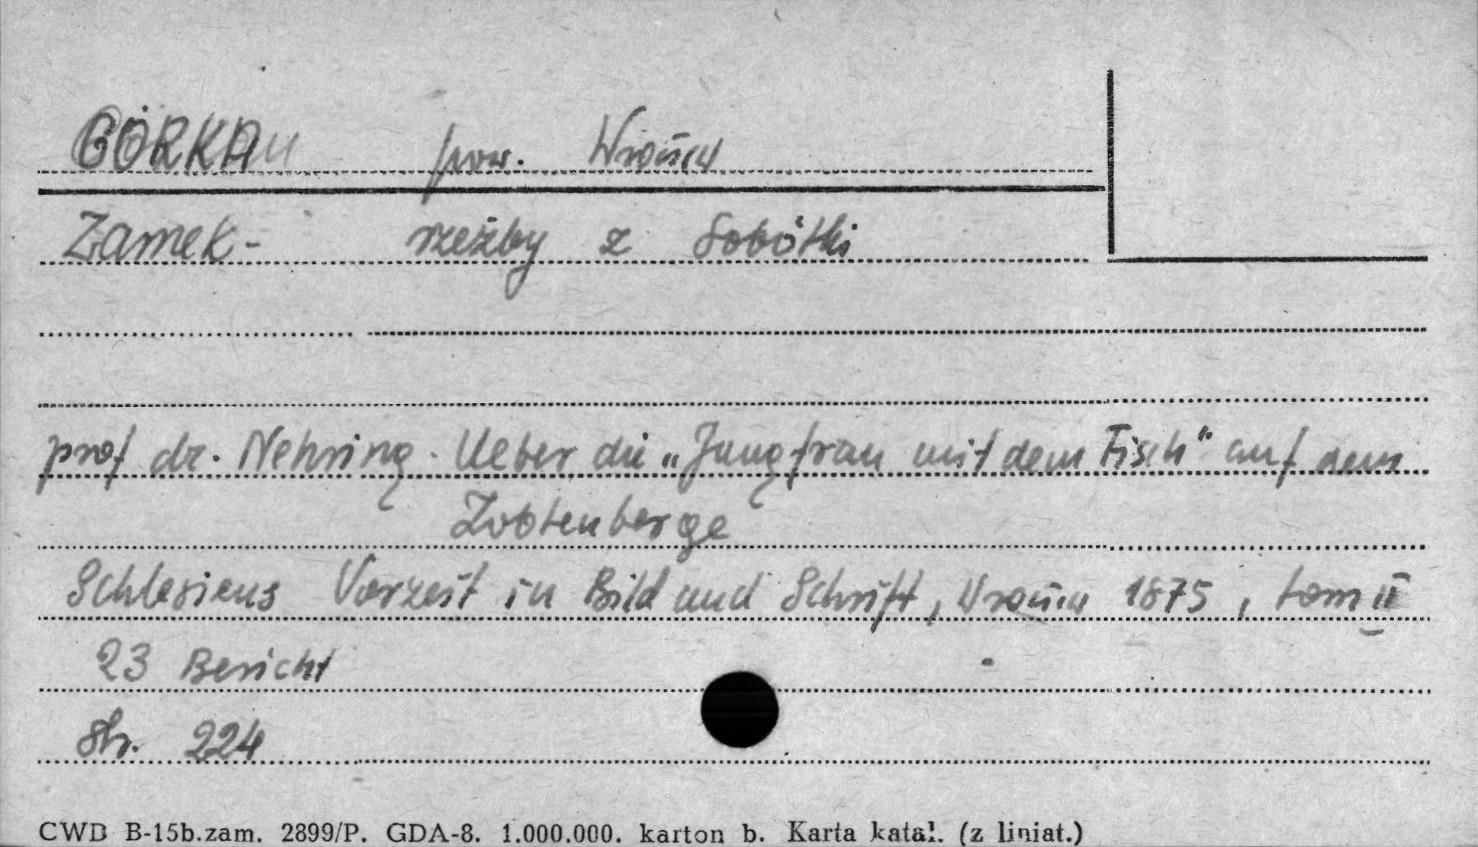 GÓRKA pow. Wrocław
Zamek - rzeźby z Sobótki
prof dr. Nehring. Ueber die „Jungfrau mit dem Fisch" auf dem
Zobtenberge
Schlesiens Vorzeit in Bild und Schrift, Wrocław 1875, tom II
23 Bericht
str. 224
CWD B-15b.zam. 2899/P. GDA-8. 1.000.000. karton b. Karta katal. (z liniat.)